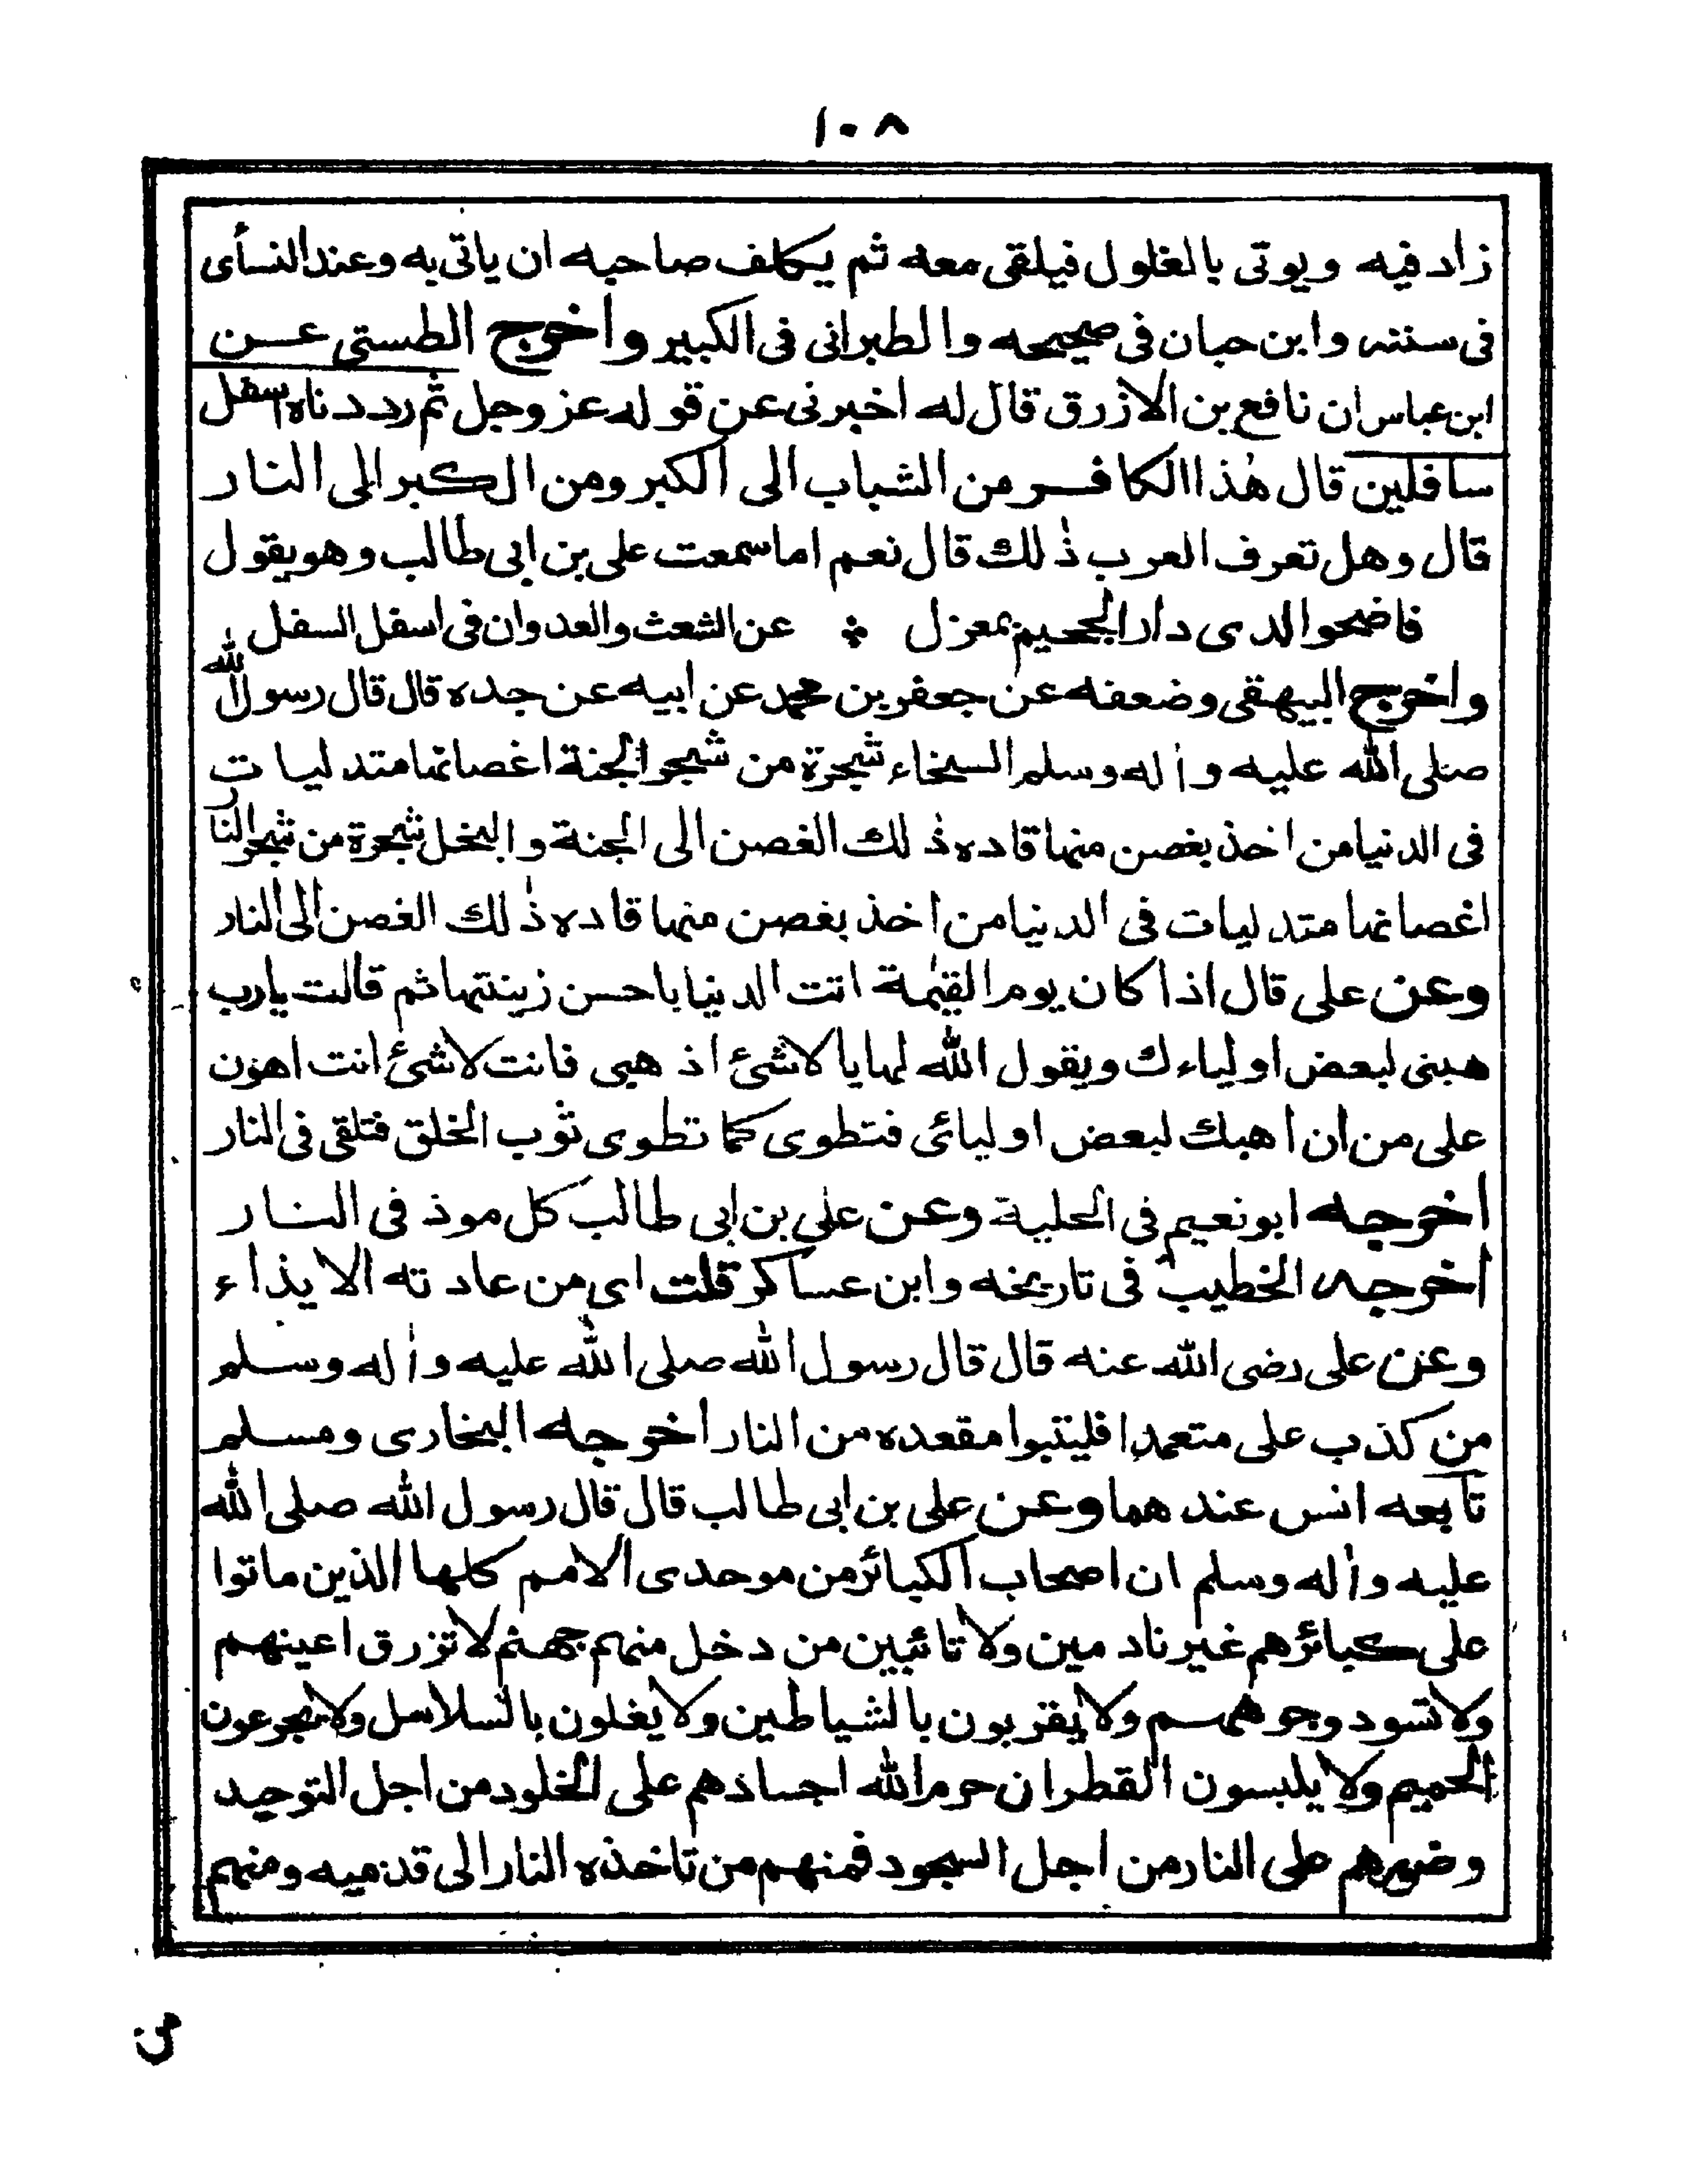 ١٠٨
زاد فيه ويوتى بالغلول فيلقى معه ثم يكلف صاحبه ان ياتى به وعند النسأى
فى سننه وابن حبان فى صحيحه والطبرانى فى الكبير واخرج الطستى عن
ابن عباس ان نافع بن الازرق قال له اخبرنى عن قوله عز وجل ثم رددناه اسفل
سافلين قال هذا الكافر من الشباب الى الكبر ومن الكبر الى النار
قال وهل تعرف العرب ذلك قال نعم اما سمعت على بن ابى طالب وهو يقول
فاضحوا لدى دار الجحيم بمعزل ٭ عن الشعث والعدوان فى اسفل السفل
واخرج البيهقى وضعفه عن جعفر بن محمد عن ابيه عن جده قال قال رسول الله
صلى الله عليه واله وسلم السخاء شجرة من شجر الجنة اغصانها متدليات
فى الدنيا من اخذ بغصن منها قاده ذلك الغصن الى الجنة والبخل شجرة من شجر النار
اغصانها متدليات فى الدنيا من اخذ بغصن منها قاده ذلك الغصن الى النار
وعن على قال اذا كان يوم القيمة اتت الدنيا باحسن زينتها ثم قالت يارب
هبنى لبعض اولياءك ويقول الله لها يا لاشئ اذ هبى فانت لاشئ انت اهون
على من ان اهبك لبعض اوليائى فتطوى كما تطوى ثوب الخلق فتلقى فى النار
اخرجه ابو نعيم فى الحلية وعن على بن ابى طالب كل موذ فى النار
اخرجه الخطيب فى تاريخه وابن عساكر قلت اى من عادته الايذاء
وعن على رضى الله عنه قال قال رسول الله صلى الله عليه واله وسلم
من كذب على متعمدا فليتبوا مقعده من النار اخرجه البخارى ومسلم
تابعه انس عندهما وعن على بن ابى طالب قال قال رسول الله صلى الله
عليه واله وسلم ان اصحاب الكبائر من موحدى الامم كلها الذين ماتوا
على كبائرهم غير نادمين ولا تائبين من دخل منهم جهنم لا تزرق اعينهم
ولا تسود وجوههم ولا يقربون بالشياطين ولا يغلون بالسلاسل ولا يجرعون
الحميم ولا يلبسون القطران حرم الله اجسادهم على الخلود من اجل التوحيد
وصورهم على النار من اجل السجود فمنهم من تاخذه النار الى قدميه ومنهم
من